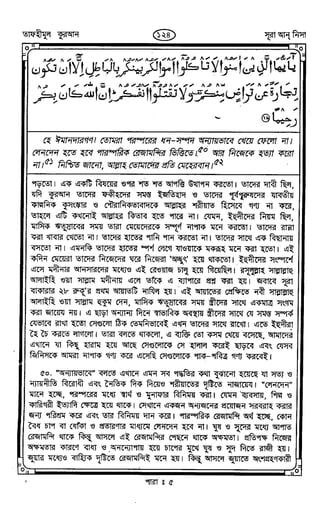 তাফহীমুল কুরআন
১২৪
সূরা আন্ নিসা
يٰٓاَيُّهَا الَّذِيْنَ اٰمَنُوْا لَا تَاْكُلُوْٓا اَمْوَالَكُمْ بَيْنَكُمْ بِالْبَاطِلِ اِلَّآ اَنْ تَكُوْنَ
تِجَارَةً عَنْ تَرَاضٍ مِّنْكُمْ وَلَا تَقْتُلُوْٓا اَنْفُسَكُمْ اِنَّ اللّٰهَ كَانَ بِكُمْ
رَحِيْمًا
হে ঈমানদারগণ! তোমরা পরস্পরের ধন-সম্পদ অন্যায়ভাবে খেয়ে ফেলো না।
লেনদেন হতে হবে পারস্পরিক রেজামন্দির ভিত্তিতে।৫০ আর নিজেকে হত্যা করো
না।৫১ নিশ্চিত জানো, আল্লাহ তোমাদের প্রতি মেহেরবান।৫২
পড়তো। এক একটি বিষয়ের ওপর শত শত আপত্তি উত্থাপন করতো। তাদের দাবী ছিল,
যদি কুরআন তাদের ফকীহদের সমস্ত ইজতিহাদ ও তাদের পূর্বপুরুষদের যাবতীয়
কাল্পনিক কুসংস্কার ও পৌরাণিকতাবাদকে আল্লাহর শরীয়াত হিসেবে গণ্য না করে,
তাহলে এটি কখনোই আল্লাহর কিতাব হতে পারে না। যেমন, ইহুদীদের নিয়ম ছিল,
মাসিক ঋতুস্রাবের সময় তারা মেয়েদেরকে সম্পূর্ণ নাপাক মনে করতো। তাদের রান্না
করা খাবার খেতো না। তাদের হাতের পানি পান করতো না। তাদের সাথে এক বিছানায়
বসতো না। এমনকি তাদের হাতের স্পর্শ লেগে যাওয়াকে মকরূহ মনে করা হতো। এই
কদিন মেয়েরা তাদের নিজেদের ঘরে নিজেরা 'অচ্ছুৎ' হয়ে থাকতো। ইহুদীদের সংস্পর্শে
এসে মদীনার আনসারদের মধ্যেও এই রেওয়াজ চালু হয়ে গিয়েছিল। রসূলুল্লাহ সাল্লাল্লাহু
আলাইহি ওয়া সাল্লাম মদীনায় এলে তাঁকে এ ব্যাপারে প্রশ্ন করা হয়। জবাবে সূরা
বাকারার ২৮ রুকূ'র প্রথম আয়াতটি নাযিল হয়। এই আয়াতের প্রেক্ষিতে নবী সাল্লাল্লাহু
আলাইহি ওয়া সাল্লাম হুকুম দেন, মাসিক ঋতুস্রাবের সময় স্ত্রীদের সাথে একমাত্র সংগম
করা জায়েয নয়। এ ছাড়া অন্যান্য দিনে স্বাভাবিক অবস্থায় স্ত্রীদের সাথে যে সমস্ত সম্পর্ক
যেভাবে রাখা হতো সেগুলো ঠিক তেমনিভাবেই এখন তাদের সাথে রাখো। এতে ইহুদীরা
হৈ চৈ করতে লাগলো। তারা বলতে থাকলো, এ ব্যক্তি তো কসম খেয়ে বসেছে, আমাদের
এখানে যা কিছু হারাম হয়ে আছে সেগুলোকে সে হালাল করেই ছাড়বে এবং যেসব
জিনিসকে আমরা নাপাক গণ্য করে এসেছি সেগুলোকে পাক-পবিত্র গণ্য করবেই।
৫০. "অন্যায়ভাবে" বলতে এখানে এমন সব পদ্ধতির কথা বুঝানো হয়েছে যা সত্য ও
ন্যায়নীতি বিরোধী এবং নৈতিক দিক দিয়েও শরীয়াতের দৃষ্টিতে নাজায়েয। "লেনদেন"
মানে হচ্ছে, পরস্পরের মধ্যে স্বার্থ ও মুনাফার বিনিময় করা। যেমন ব্যবসায়, শিল্প ও
কারিগরী ইত্যাদি ক্ষেত্রে হয়ে থাকে। সেখানে একজন অন্যজনের প্রয়োজন সরবরাহ করার
জন্য পরিশ্রম করে এবং তার বিনিময় দান করে। পারস্পরিক রেজামন্দি অর্থ হচ্ছে, কোন
বৈধ চাপ বা ধোঁকা ও প্রতারণার মাধ্যমে লেনদেন হবে না। ঘুষ ও সুদের মধ্যে আপাত
রেজামন্দি থাকে কিন্তু আসলে এই রেজামন্দির পেছনে থাকে অক্ষমতা। প্রতিপক্ষ নিজের
অক্ষমতার কারণে বাধ্য ও অনন্যোপায় হয়ে চাপের মুখে ঘুষ ও সুদ দিতে রাজী হয়।
জুয়ার মধ্যেও বাহ্যিক দৃষ্টিতে রেজামন্দিই মনে হয়। কিন্তু আসলে জুয়াতে অংশগ্রহণকারী
পারা ঃ ৫